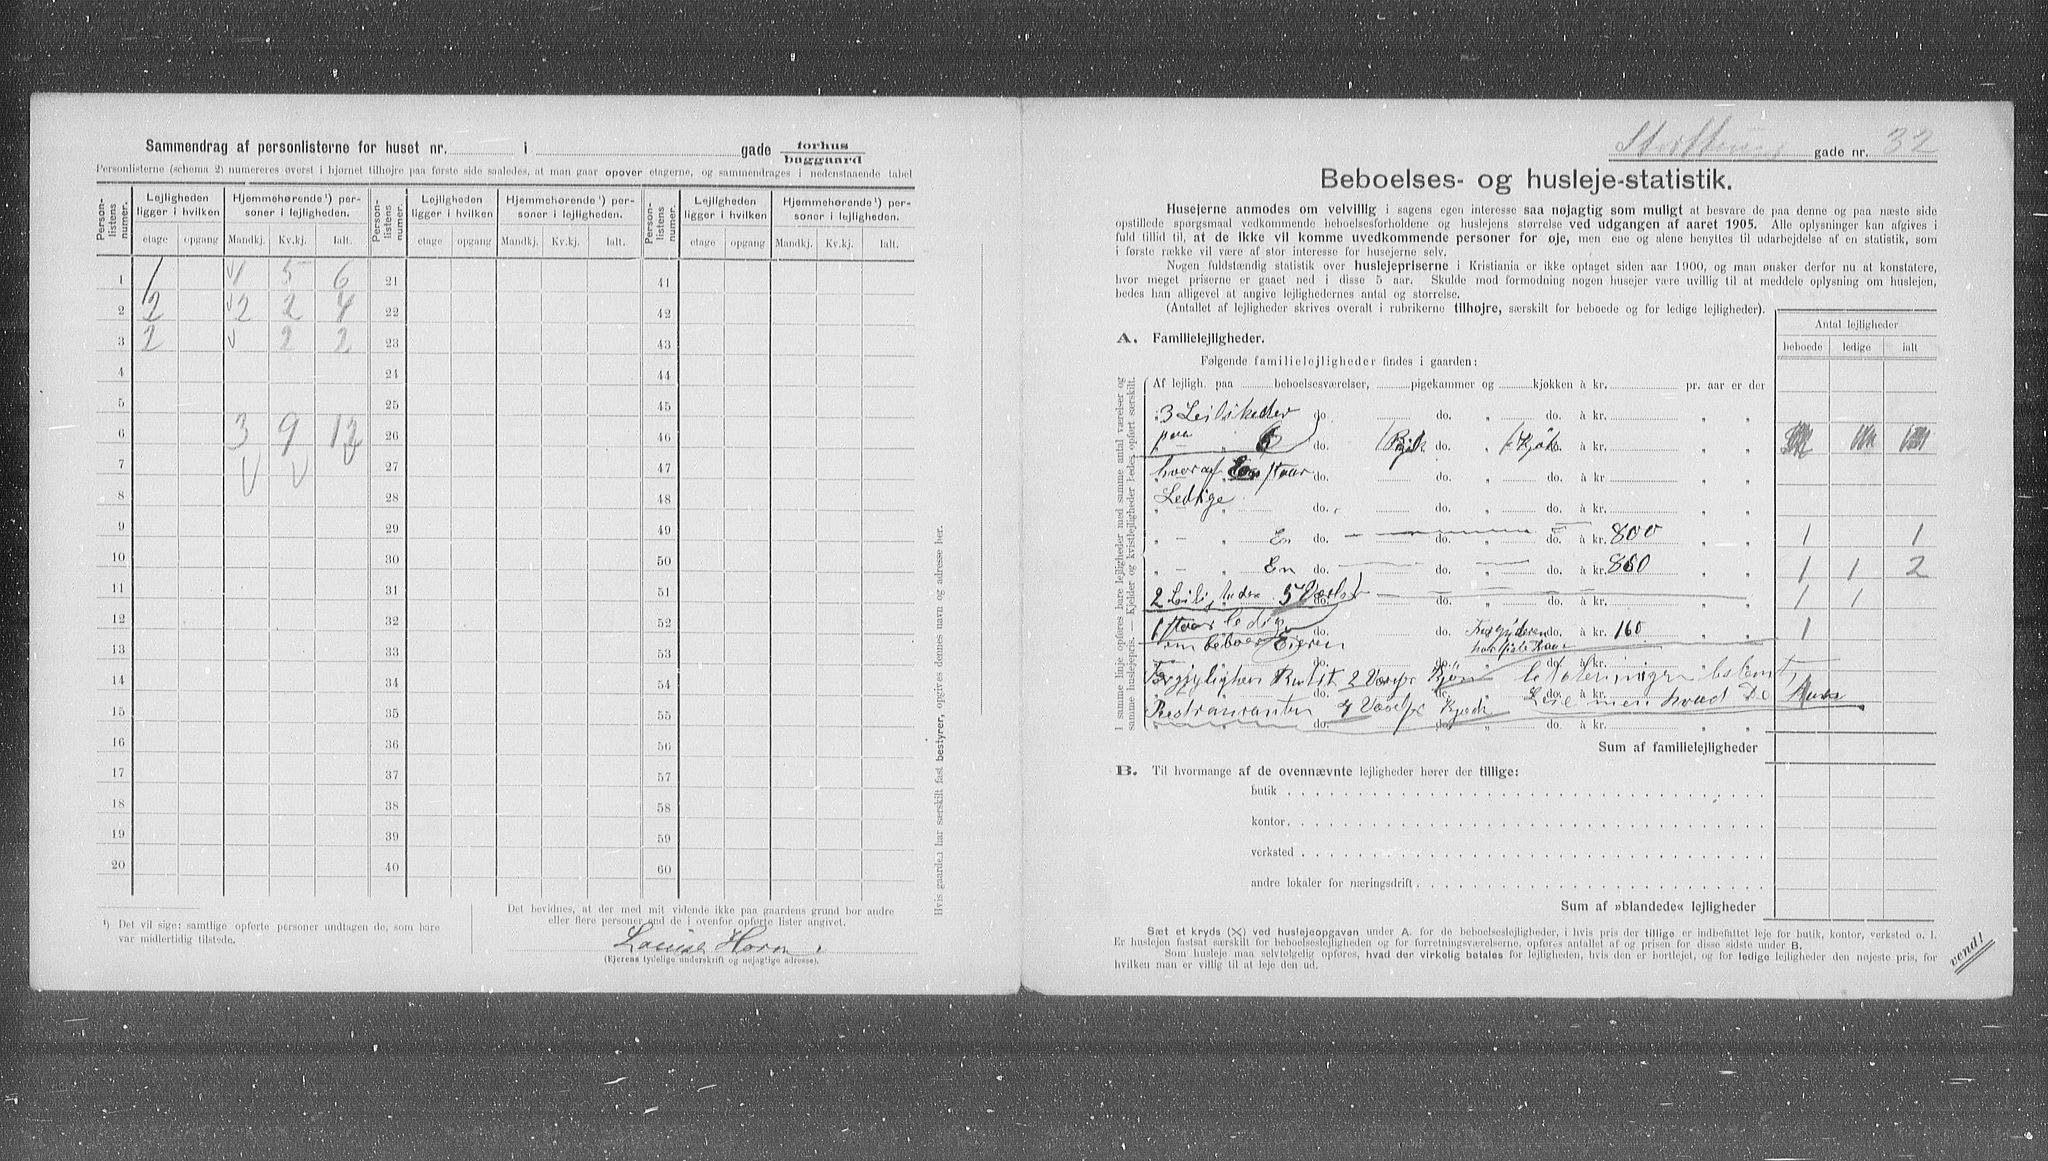 Sammendrag af personlisterne for huset nr. i gade forhus baggaard
Personlisterne (schema 2) numereres øverst i hjørnet tilhøjre paa første side saaledes, at man gaar opover etagerne, og sammendrages i nedenstaaende tabel
Person-listens numer. Lejligheden ligger i hvilken Hjemmehørende¹) personer i lejligheden. Person-listens numer. Lejligheden ligger i hvilken Hjemmehørende¹) personer i lejligheden. Person-listens numer. Lejligheden ligger i hvilken Hjemmehørende¹) personer i lejligheden.
etage opgang Mandkj. Kv.kj. Ialt. etage opgang Mandkj. Kv.kj. Ialt. etage opgang Mandkj. Kv.kj. Ialt.
1 1 1 5 6 21 41
2 2 2 2 4 22 42
3 2 2 2 23 43
4 24 44
5 25 45
6 3 9 12 26 46
7 27 47
8 28 48
9 29 49
10 30 50
11 31 51
12 32 52
13 33 53
14 34 54
15 35 55
16 36 56
17 37 57
18 38 58
19 39 59
20 40 60
¹) Det vil sige: samtlige opførte personer undtagen de, som bare var midlertidig tilstede.
Det bevidnes, at der med mit vidende ikke paa gaardens grund bor andre
eller flere personer end de i ovenfor opførte lister angivet.
Louise Horn
(Ejerens tydelige underskrift og nøjagtige adresse).
Hvis gaarden har særskilt fast bestyrer, opgives dennes navn og adresse her.
gade nr. 32
Beboelses- og husleje-statistik.
Husejerne anmodes om velvillig i sagens egen interesse saa nøjagtig som muligt at besvare de paa denne og paa næste side
opstillede spørgsmaal vedkommende beboelsesforholdene og huslejens størrelse ved udgangen af aaret 1905. Alle oplysninger kan afgives i
fuld tillid til, at de ikke vil komme uvedkommende personer for øje, men ene og alene benyttes til udarbejdelse af en statistik, som
i første række vil være af stor interesse for husejerne selv.
Nogen fuldstændig statistik over huslejepriserne i Kristiania er ikke optaget siden aar 1900, og man ønsker derfor nu at konstatere,
hvor meget priserne er gaaet ned i disse 5 aar. Skulde mod formodning nogen husejer være uvillig til at meddele oplysning om huslejen,
bedes han alligevel at angive lejlighedernes antal og størrelse.
(Antallet af lejligheder skrives overalt i rubrikerne tilhøjre, særskilt for beboede og for ledige lejligheder).
Antal lejligheder
beboede ledige ialt
A. Familielejligheder.
Følgende familielejligheder findes i gaarden:
I samme linje opføres bare lejligheder med samme antal værelser og samme huslejepris. — Kjelder og kvistlejligheder bedes opført særskilt.
Af lejligh. paa beboelsesværelser, pigekammer og kjøkken à kr. pr. aar er der
3 do. do. „ do. à kr. „ „
paa 6 do. do. do. à kr. „ „
hvoraf En staar do. do. „ do. à kr. „ „
Ledige do. do. „ do. à kr. „ „
„ — En do. do. „ do. à kr. 800 „ „ 1 1
„ — En do. do. „ do. à kr. 860 „ „ 1 1 2
2 5 do. do. „ do. à kr. „ „ 1 1
1 staar ledig do. do. do. à kr. 160 „ „ 1
beboer Eieren do. do. do. à kr.
2 do. do. do. à kr.
do. do. hvad De
do. do. do. à kr.
Sum af familielejligheder
B. Til hvormange af de ovennævnte lejligheder hører der tillige:
butik
kontor
verksted
andre lokaler for næringsdrift
Sum af »blandede« lejligheder
Sæt et kryds (×) ved huslejeopgaven under A. for de beboelseslejligheder, i hvis pris der tillige er indbefattet leje for butik, kontor, verksted o. l.
Er huslejen fastsat særskilt for beboelseslejligheden og for forretningsværelserne, opføres antallet af og prisen for disse sidste under B.
Som husleje maa selvfølgelig opføres, hvad der virkelig betales for lejligheden, hvis den er bortlejet, og for ledige lejligheder den nøjeste pris, for
hvilken man er villig til at leje den ud.
vend!